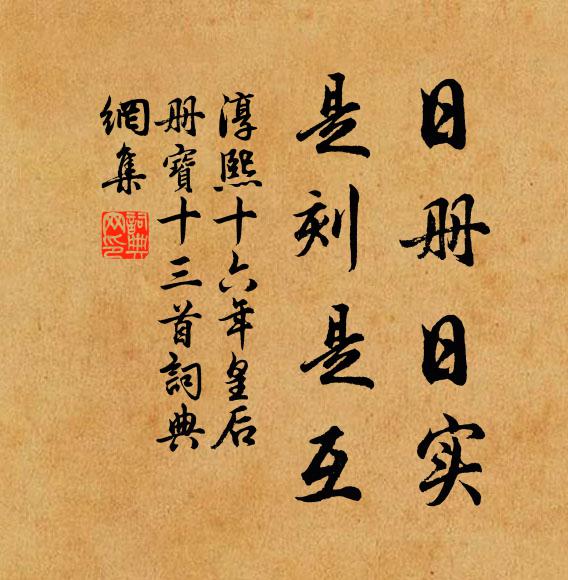 日册日实
是刻是互
淳熙十六年皇后
册寶十三首詞典
網集
詞典
网印